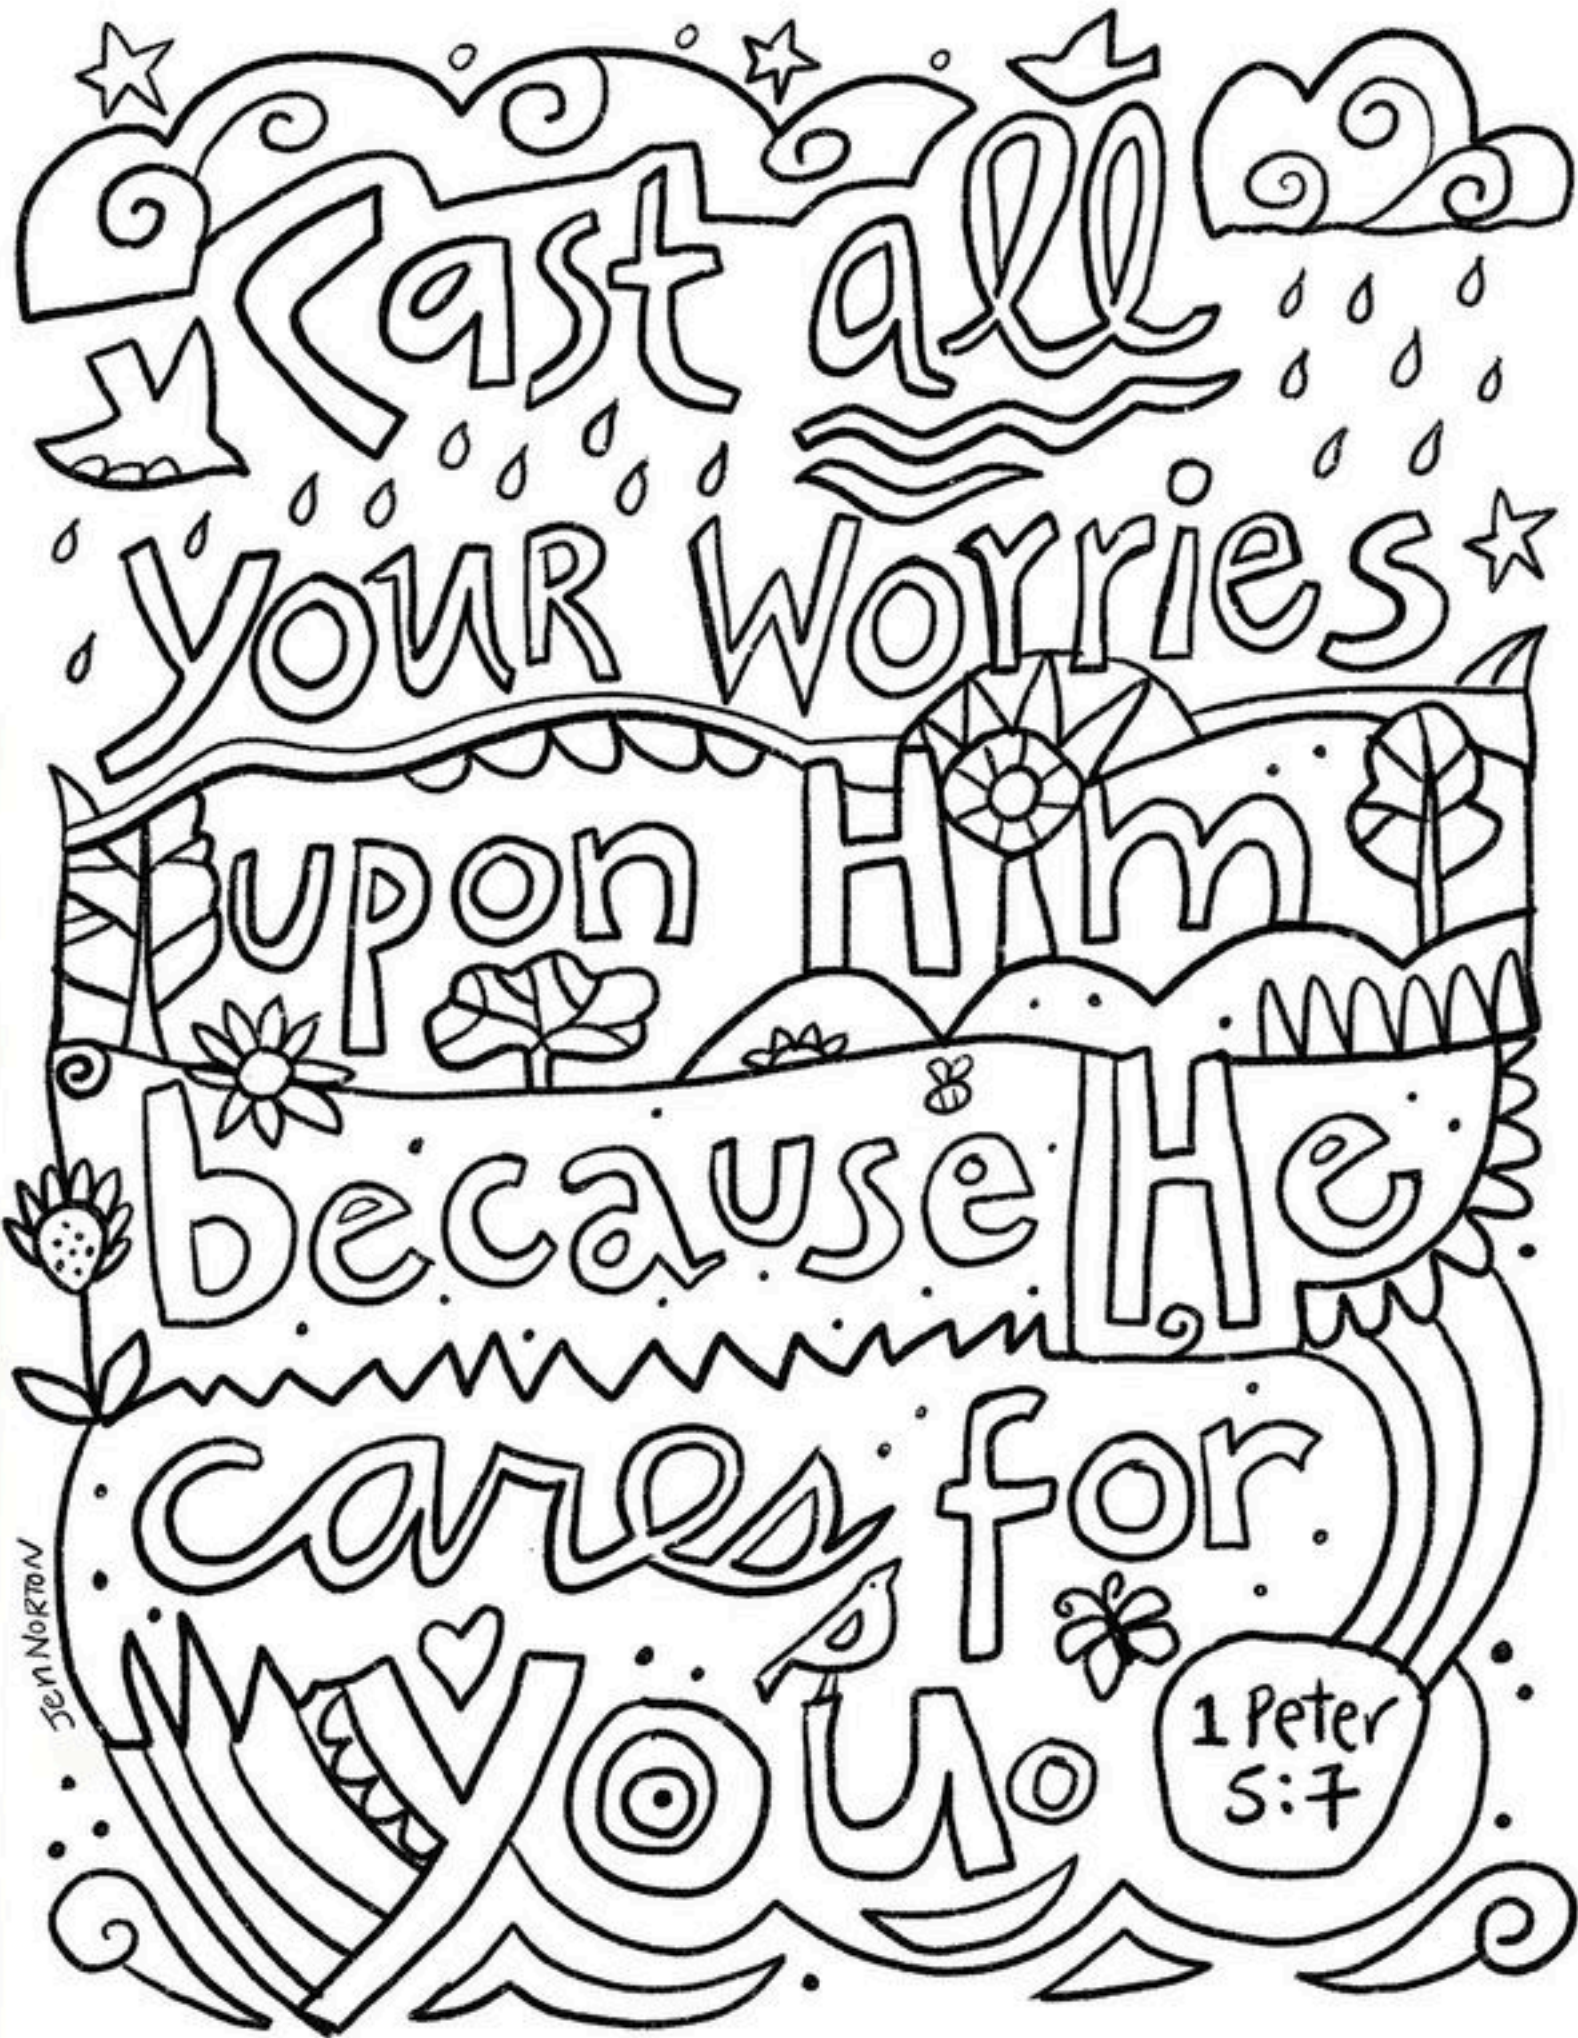 Cast all
your worries
upon Him
because He
cares for
you.
1 Peter
5:7
Jen Norton